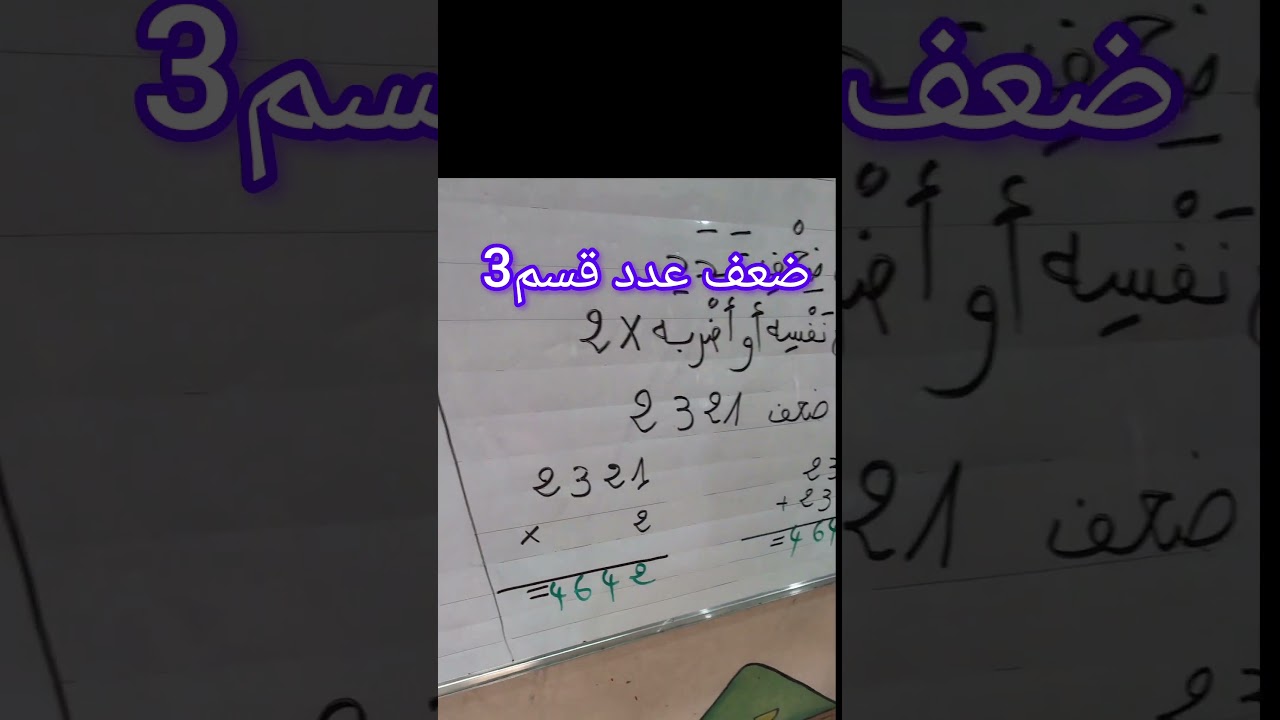 ضعف عدد قسم3
نَفْسِه أو أَضْرِبه 2 X
ضعف 2321
2321
× 2
=4642
23
+ 23
=464